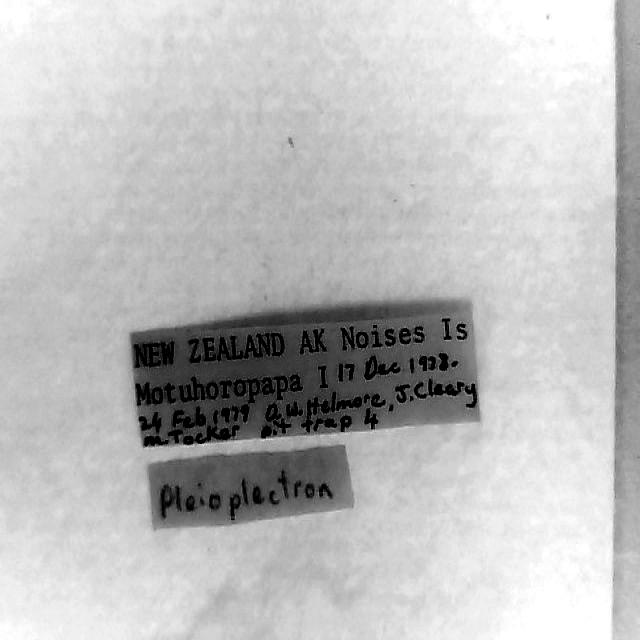 NEW ZEALAND AK Noises Is
Motuhoropapa I 17 Dec 1978-
24 Feb 1979 D.W. Helmore, J. Cleary
M. Tocker Pit trap 4
Pleioplectron